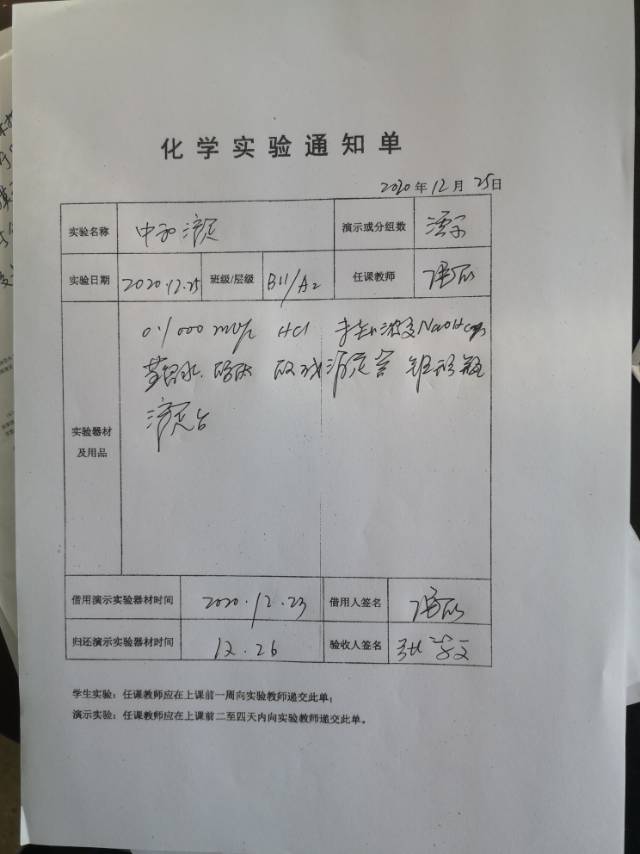 化学实验通知单
2020年12月25日
实验名称 中和滴定 演示或分组数 演示
实验日期 2020.12.25 班级/层级 B11/A2 任课教师
0.1000 mol/L HCl 未知浓度 NaOH
蒸馏水 酚酞 酸碱滴定管 锥形瓶
滴定台
实验器材
及用品
借用演示实验器材时间 2020.12.23 借用人签名
归还演示实验器材时间 12.26 验收人签名 张
学生实验：任课教师应在上课前一周向实验教师递交此单；
演示实验：任课教师应在上课前二至四天内向实验教师递交此单。